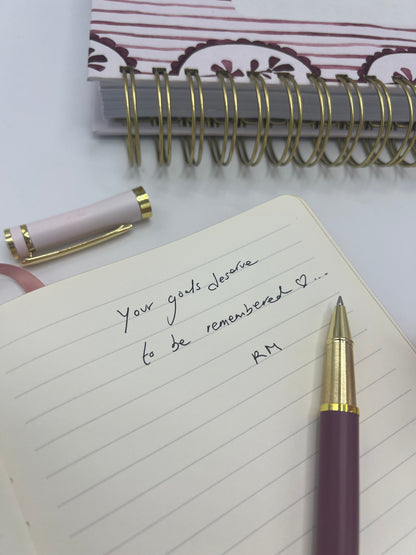 Your goals deserve
to be remembered ♡...
RM